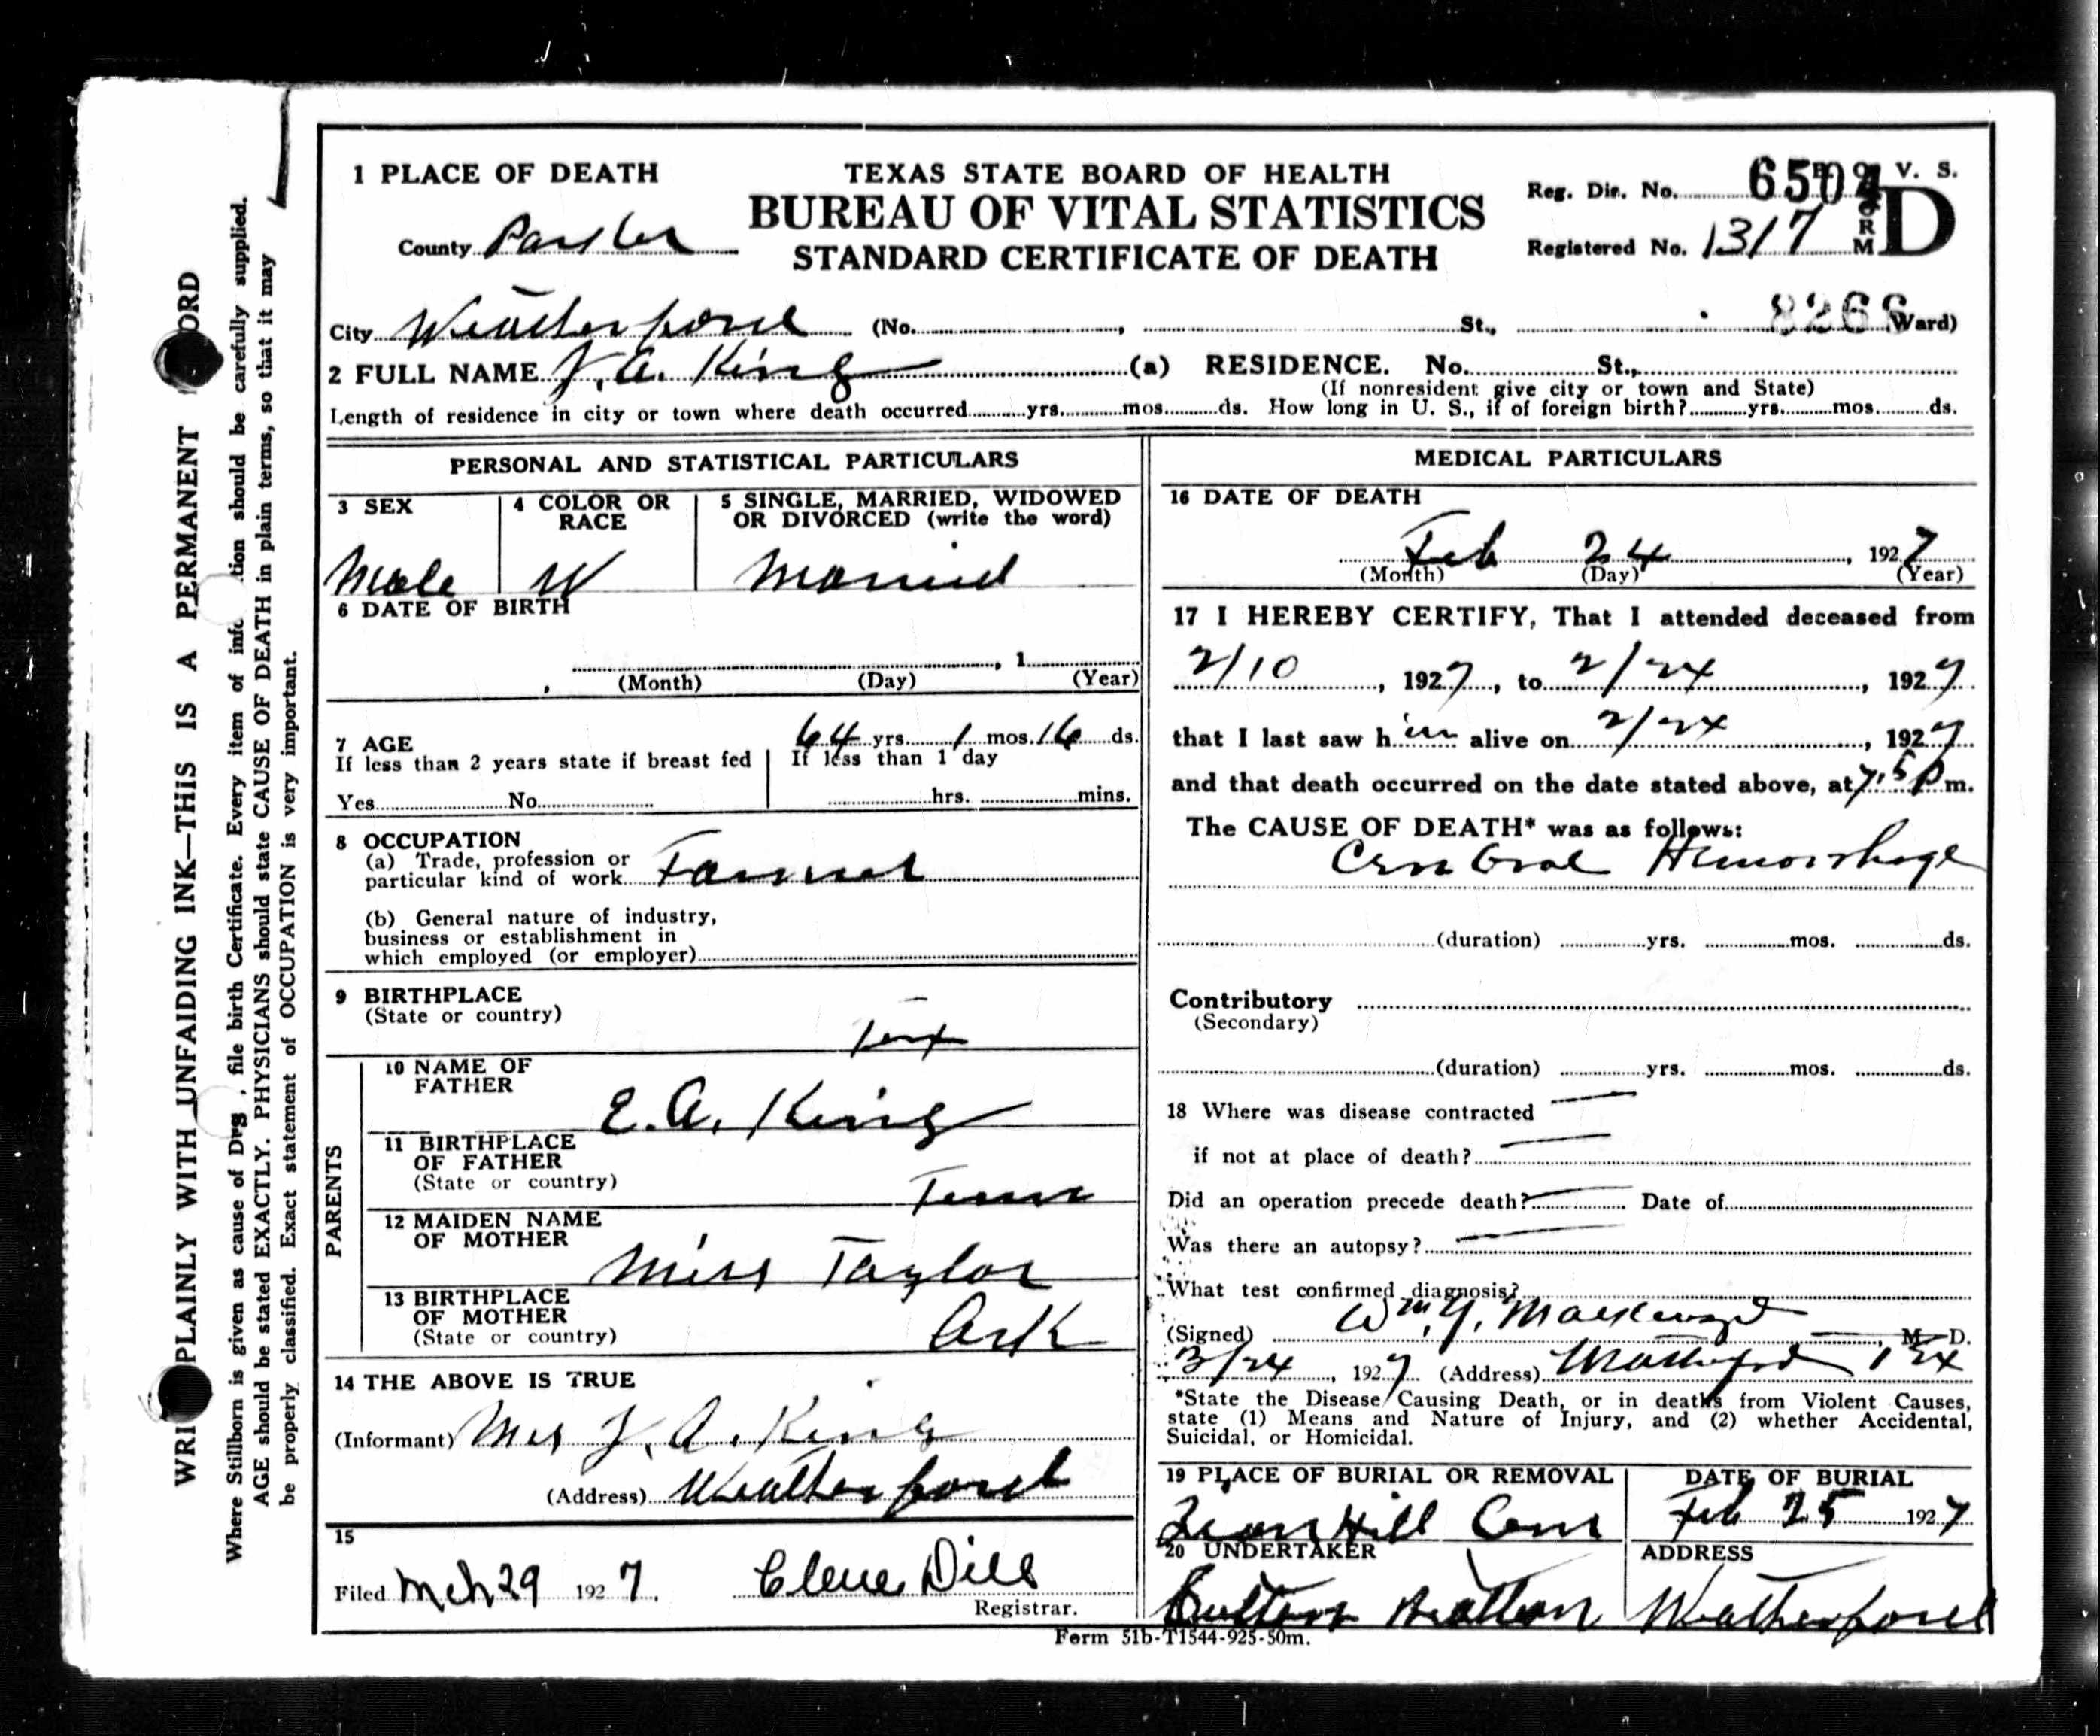 1 PLACE OF DEATH
TEXAS STATE BOARD OF HEALTH
BUREAU OF VITAL STATISTICS
STANDARD CERTIFICATE OF DEATH
Reg. Dis. No. 6504
V. S.
FORM D
County Parker
Registered No. 1317
City Weatherford (No. , St., Ward)
2 FULL NAME J. A. King (a) RESIDENCE. No. St.,
(If nonresident give city or town and State)
Length of residence in city or town where death occurred yrs. mos. ds. How long in U. S., if of foreign birth? yrs. mos. ds.
PERSONAL AND STATISTICAL PARTICULARS
3 SEX
Male
4 COLOR OR RACE
W
5 SINGLE, MARRIED, WIDOWED
OR DIVORCED (write the word)
Married
6 DATE OF BIRTH
, 1
(Month) (Day) (Year)
7 AGE 64 yrs. 1 mos. 16 ds.
If less than 2 years state if breast fed
If less than 1 day
Yes No
hrs. mins.
8 OCCUPATION
(a) Trade, profession or
particular kind of work Farmer
(b) General nature of industry,
business or establishment in
which employed (or employer)
9 BIRTHPLACE
(State or country)
Tex
PARENTS
10 NAME OF
FATHER
E. A. King
11 BIRTHPLACE
OF FATHER
(State or country) Tenn
12 MAIDEN NAME
OF MOTHER
Miss Taylor
13 BIRTHPLACE
OF MOTHER
(State or country) Ark
14 THE ABOVE IS TRUE
(Informant) Mrs J. A. King
(Address) Weatherford
15
Filed Mch 29 1927. Cleve Dill
Registrar.
MEDICAL PARTICULARS
16 DATE OF DEATH
Feb 24, 1927
(Month) (Day) (Year)
17 I HEREBY CERTIFY, That I attended deceased from
2/10, 1927, to 2/24, 1927
that I last saw him alive on 2/24, 1927
and that death occurred on the date stated above, at 7.5 P m.
The CAUSE OF DEATH* was as follows:
Hemorrhage
(duration) yrs. mos. ds.
Contributory
(Secondary)
(duration) yrs. mos. ds.
18 Where was disease contracted
if not at place of death?
Did an operation precede death? Date of
Was there an autopsy?
What test confirmed diagnosis?
(Signed) Wm. , M. D.
3/24, 1927 (Address) Weatherford
*State the Disease Causing Death, or in deaths from Violent Causes,
state (1) Means and Nature of Injury, and (2) whether Accidental,
Suicidal, or Homicidal.
19 PLACE OF BURIAL OR REMOVAL
Zion Hill Cem
DATE OF BURIAL
Feb 25 1927
20 UNDERTAKER
ADDRESS
Weatherford
Form 51b-T1544-925-50m.
PLAINLY WITH UNFAIDING INK—THIS IS A PERMANENT
Where Stillborn is given as cause of , file birth Certificate. Every item of should be carefully supplied.
AGE should be stated EXACTLY. PHYSICIANS should state CAUSE OF DEATH in plain terms, so that it may
be properly classified. Exact statement of OCCUPATION is very important.